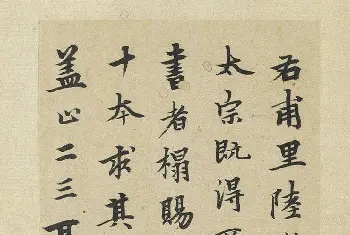 右甫里陸
太宗既得
書者榻賜
十本求其
蓋止二三